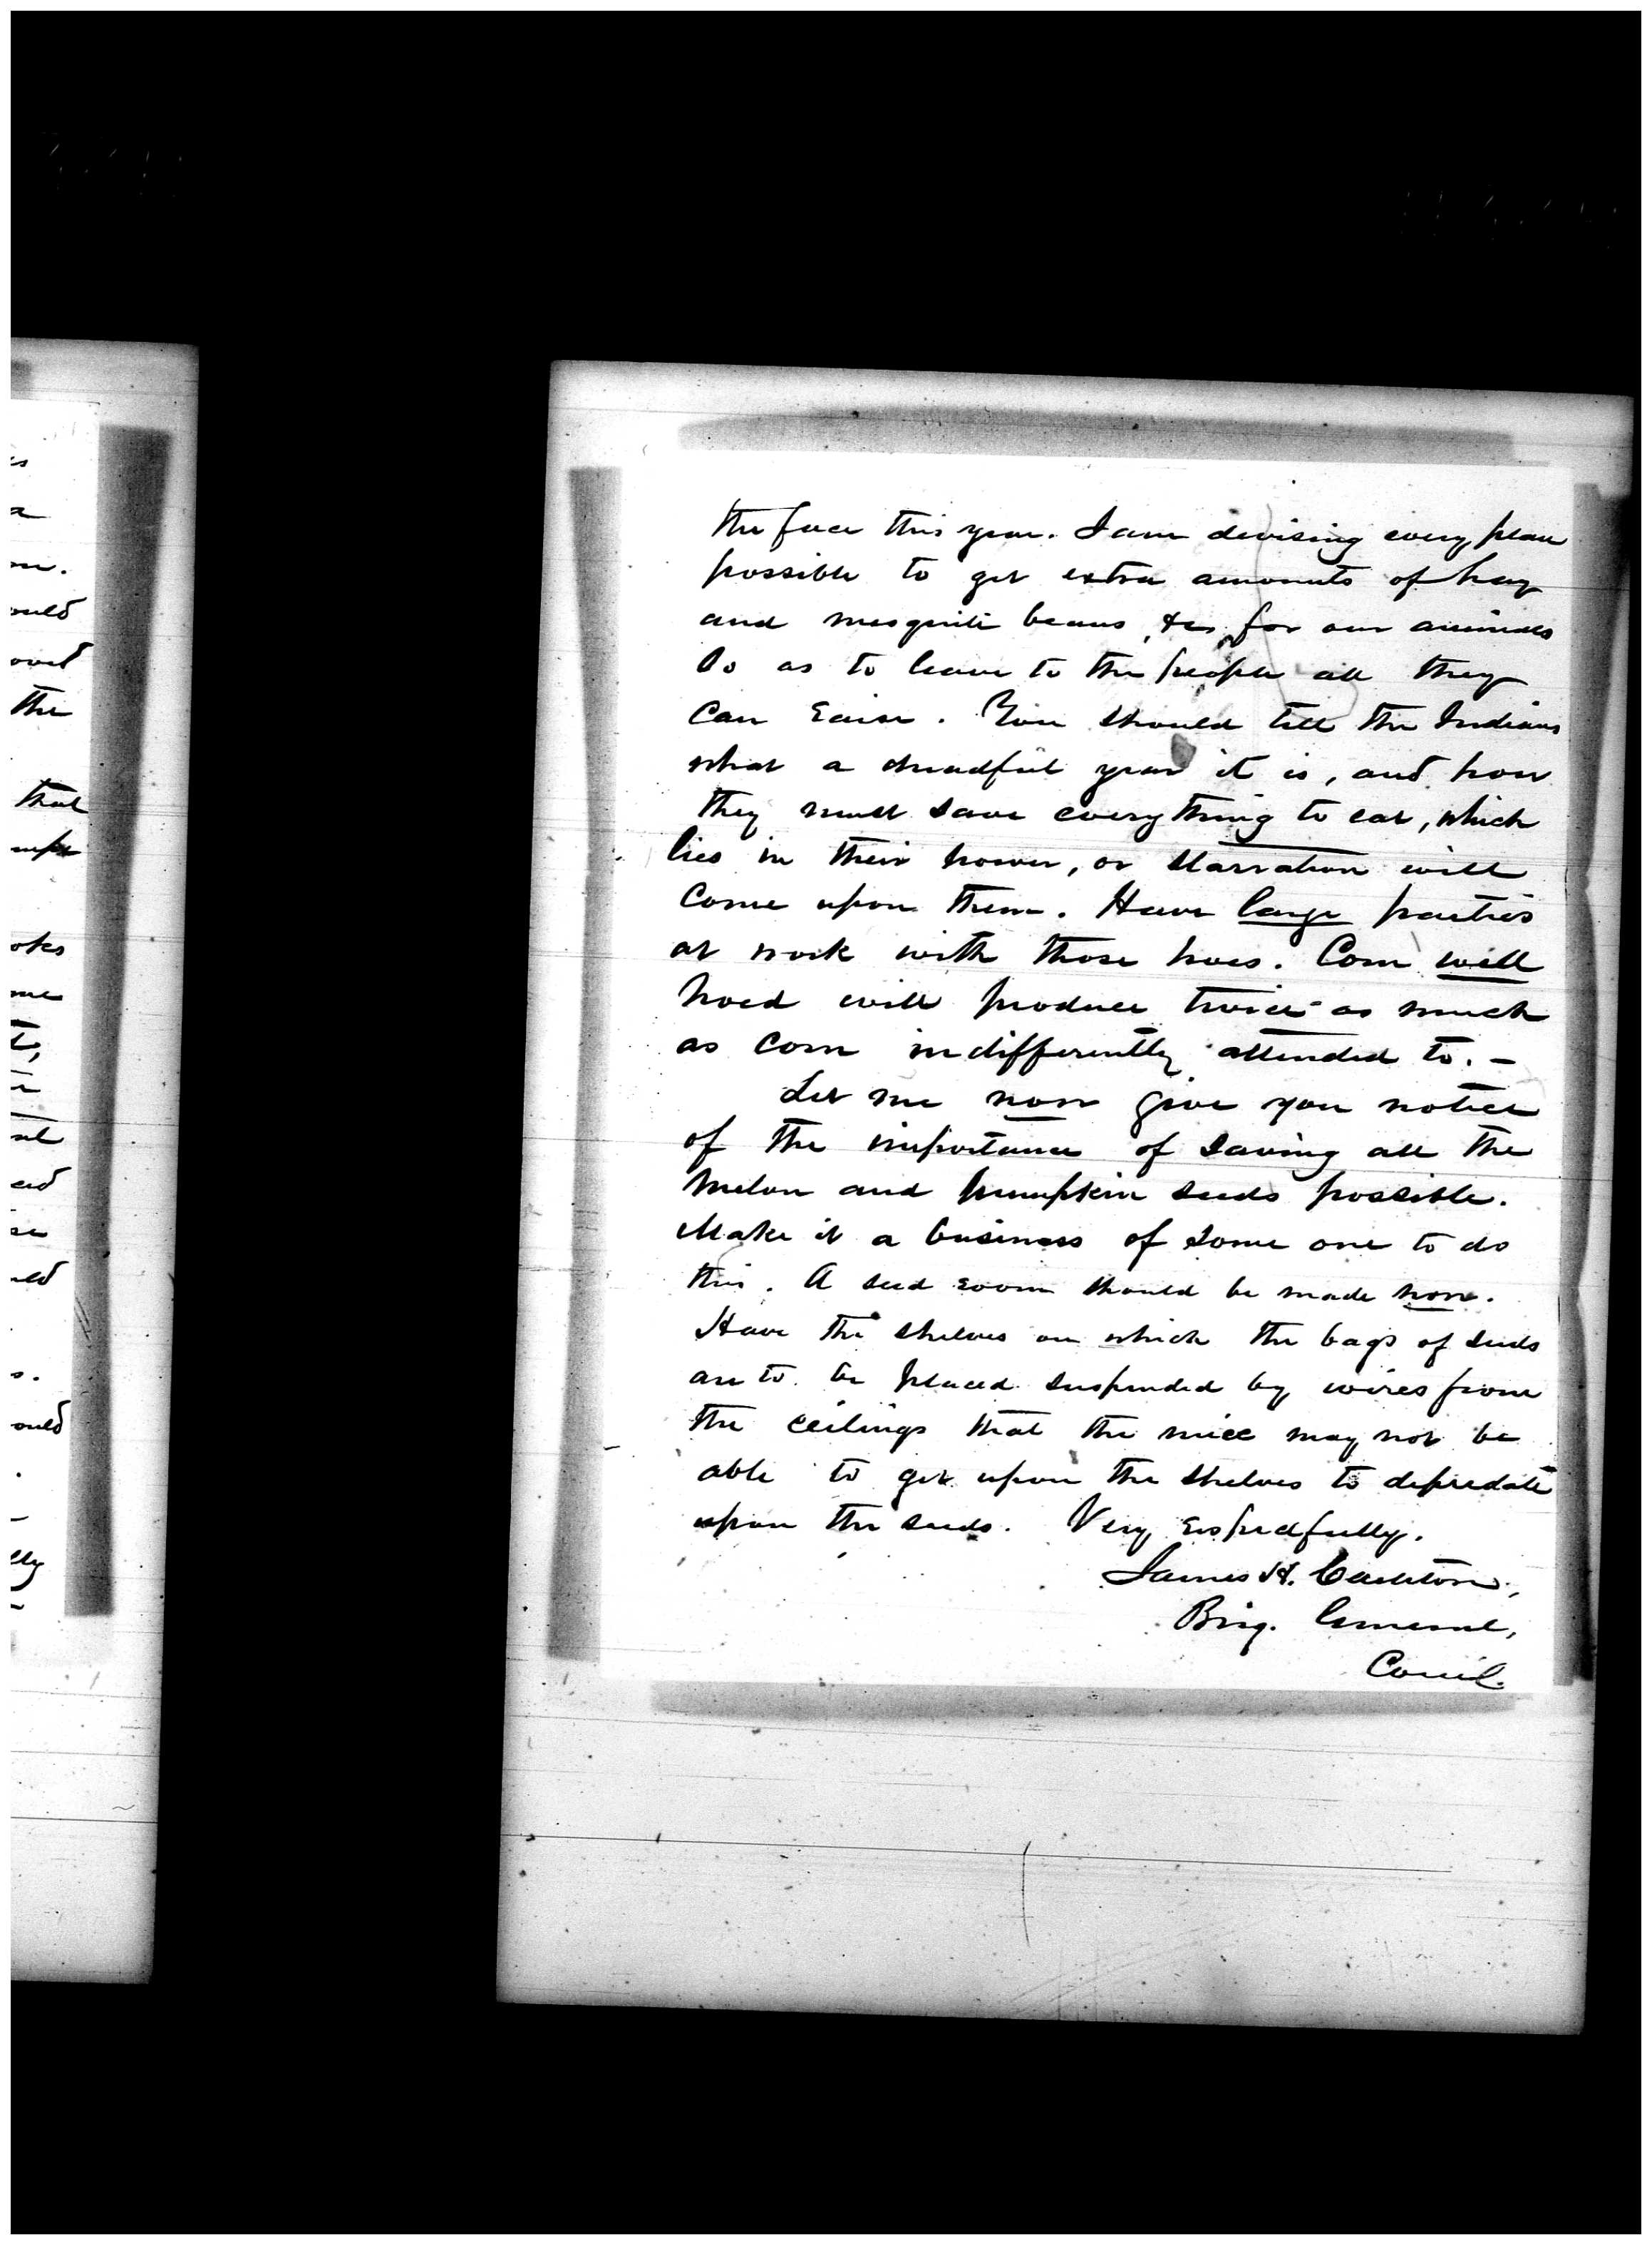 es
a
ould
the
that
otes
me
ould
lly
the face this year. I am devising every plan
possible to get extra amounts of hay
and mesquite beans, &c, for our animals
So as to leave to the people all they
can raise. You should tell the Indians
what a dreadful year it is, and how
they must save everything to eat, which
lies in their power, or starvation will
come upon them. Have large parties
at work with those hoes. Corn well
hoed will produce twice as much
as corn indifferently attended to. –
Let me now give you notice
of the importance of saving all the
melon and pumpkin seeds possible.
Make it a business of some one to do
this. A seed room should be made now.
Have the shelves on which the bags of seeds
are to be placed suspended by wires from
the ceilings that the mice may not be
able to get upon the shelves to depredate
upon the seeds. Very respectfully.
James H. Carleton,
Brig. General,
Com'd'g.